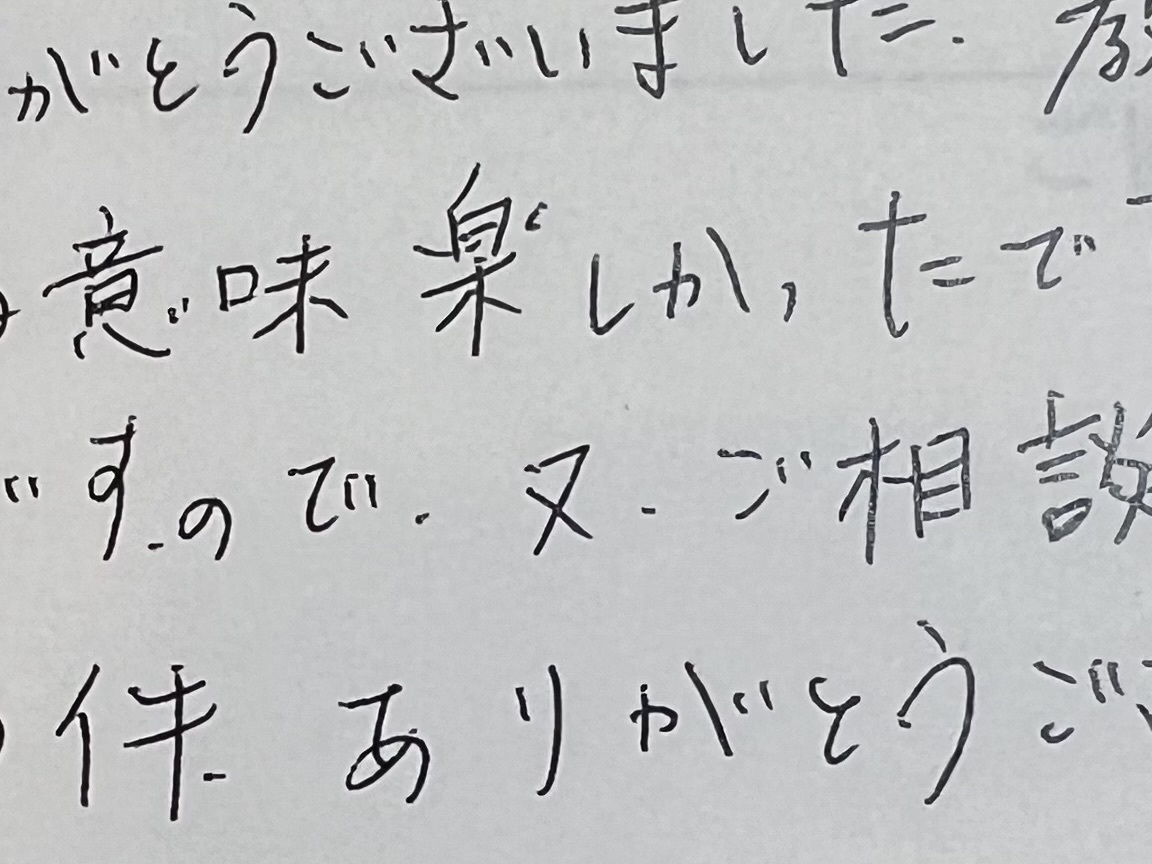 がとうございました.
意味楽しかったで
すので.又.ご相談
件.ありがとうご